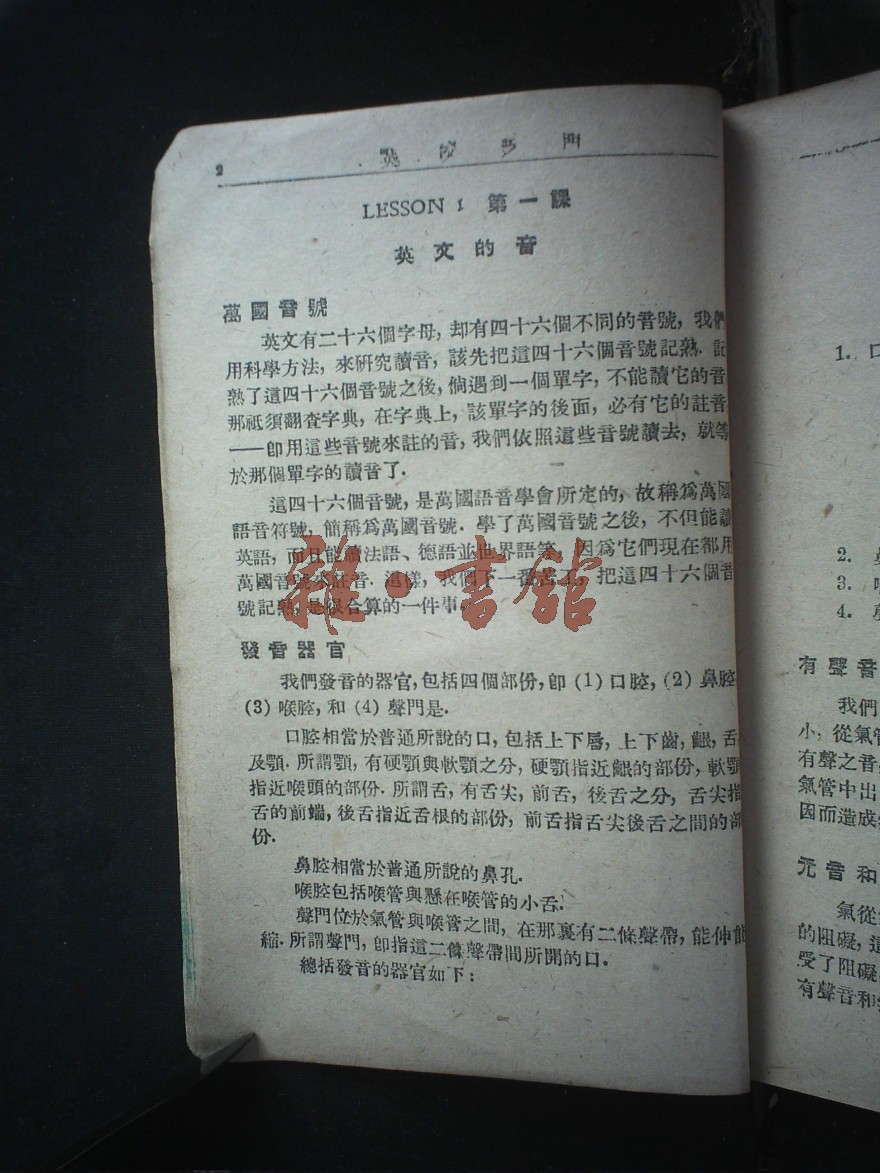 2
門
LESSON 1 第一課
英文的音
萬國音號
英文有二十六個字母，却有四十六個不同的音號，我們
用科學方法，來研究讀音，該先把這四十六個音號記熟．記
熟了這四十六個音號之後，倘遇到一個單字，不能讀它的音
那祇須翻査字典，在字典上，該單字的後面，必有它的註音
——卽用這些音號來註的音，我們依照這些音號讀去，就等
於那個單字的讀音了．
這四十六個音號，是萬國語音學會所定的，故稱爲萬國
語音符號，簡稱爲萬國音號．學了萬國音號之後，不但能讀
英語，而且能讀法語、德語並世界語等，因爲它們現在都用
萬國音號來註音．這樣，我們下一番苦工，把這四十六個音
號記熟，是很合算的一件事．
雜·書館
發音器官
我們發音的器官，包括四個部份，卽 (1) 口腔，(2) 鼻腔
(3) 喉腔，和 (4) 聲門是．
口腔相當於普通所說的口，包括上下唇，上下齒，齦，舌
及顎．所謂顎，有硬顎與軟顎之分，硬顎指近齦的部份，軟顎
指近喉頭的部份．所謂舌，有舌尖，前舌，後舌之分，舌尖指
舌的前端，後舌指近舌根的部份，前舌指舌尖後舌之間的部
份．
鼻腔相當於普通所說的鼻孔．
喉腔包括喉管與懸在喉管的小舌．
聲門位於氣管與喉管之間，在那裏有二條聲帶，能伸能
縮．所謂聲門，卽指這二條聲帶間所開的口．
總括發音的器官如下：
1. 口
2.
3.
4.
有聲音
我們
小，從氣管
有聲之音，
氣管中出
因而造成
元音和
氣從
的阻礙，這
受了阻礙
有聲音和